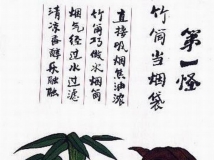 第一怪
竹筒当烟袋
直接吸烟焦油浓
竹筒巧做水烟筒
烟气经过水过滤
清凉香醇乐融融